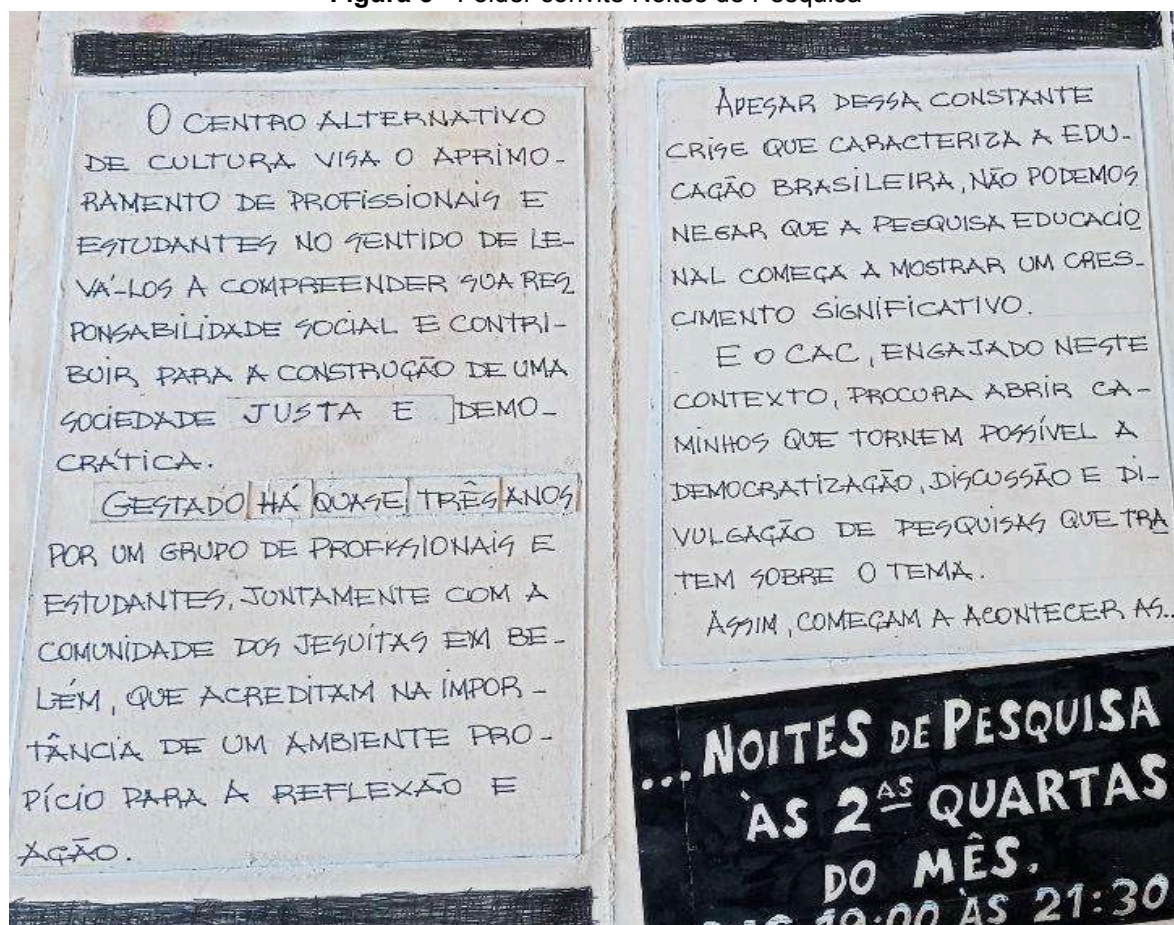 O CENTRO ALTERNATIVO
DE CULTURA VISA O APRIMO-
RAMENTO DE PROFISSIONAIS E
ESTUDANTES NO SENTIDO DE LE-
VÁ-LOS A COMPREENDER SUA RES
PONSABILIDADE SOCIAL E CONTRI-
BUIR PARA A CONSTRUÇÃO DE UMA
SOCIEDADE JUSTA E DEMO-
CRÁTICA.
GESTADO HÁ QUASE TRÊS ANOS
POR UM GRUPO DE PROFISSIONAIS E
ESTUDANTES, JUNTAMENTE COM A
COMUNIDADE DOS JESUÍTAS EM BE-
LÉM, QUE ACREDITAM NA IMPOR-
TÂNCIA DE UM AMBIENTE PRO-
PÍCIO PARA A REFLEXÃO E
AÇÃO.
APESAR DESSA CONSTANTE
CRISE QUE CARACTERIZA A EDU-
CAÇÃO BRASILEIRA, NÃO PODEMOS
NEGAR QUE A PESQUISA EDUCACIO
NAL COMEÇA A MOSTRAR UM CRES-
CIMENTO SIGNIFICATIVO.
E O CAC, ENGAJADO NESTE
CONTEXTO, PROCURA ABRIR CA-
MINHOS QUE TORNEM POSSÍVEL A
DEMOCRATIZAÇÃO, DISCUSSÃO E DI-
VULGAÇÃO DE PESQUISAS QUE TRA
TEM SOBRE O TEMA.
ASSIM, COMEÇAM A ACONTECER AS...
...NOITES DE PESQUISA
ÀS 2AS QUARTAS
DO MÊS.
19:00 ÀS 21:30